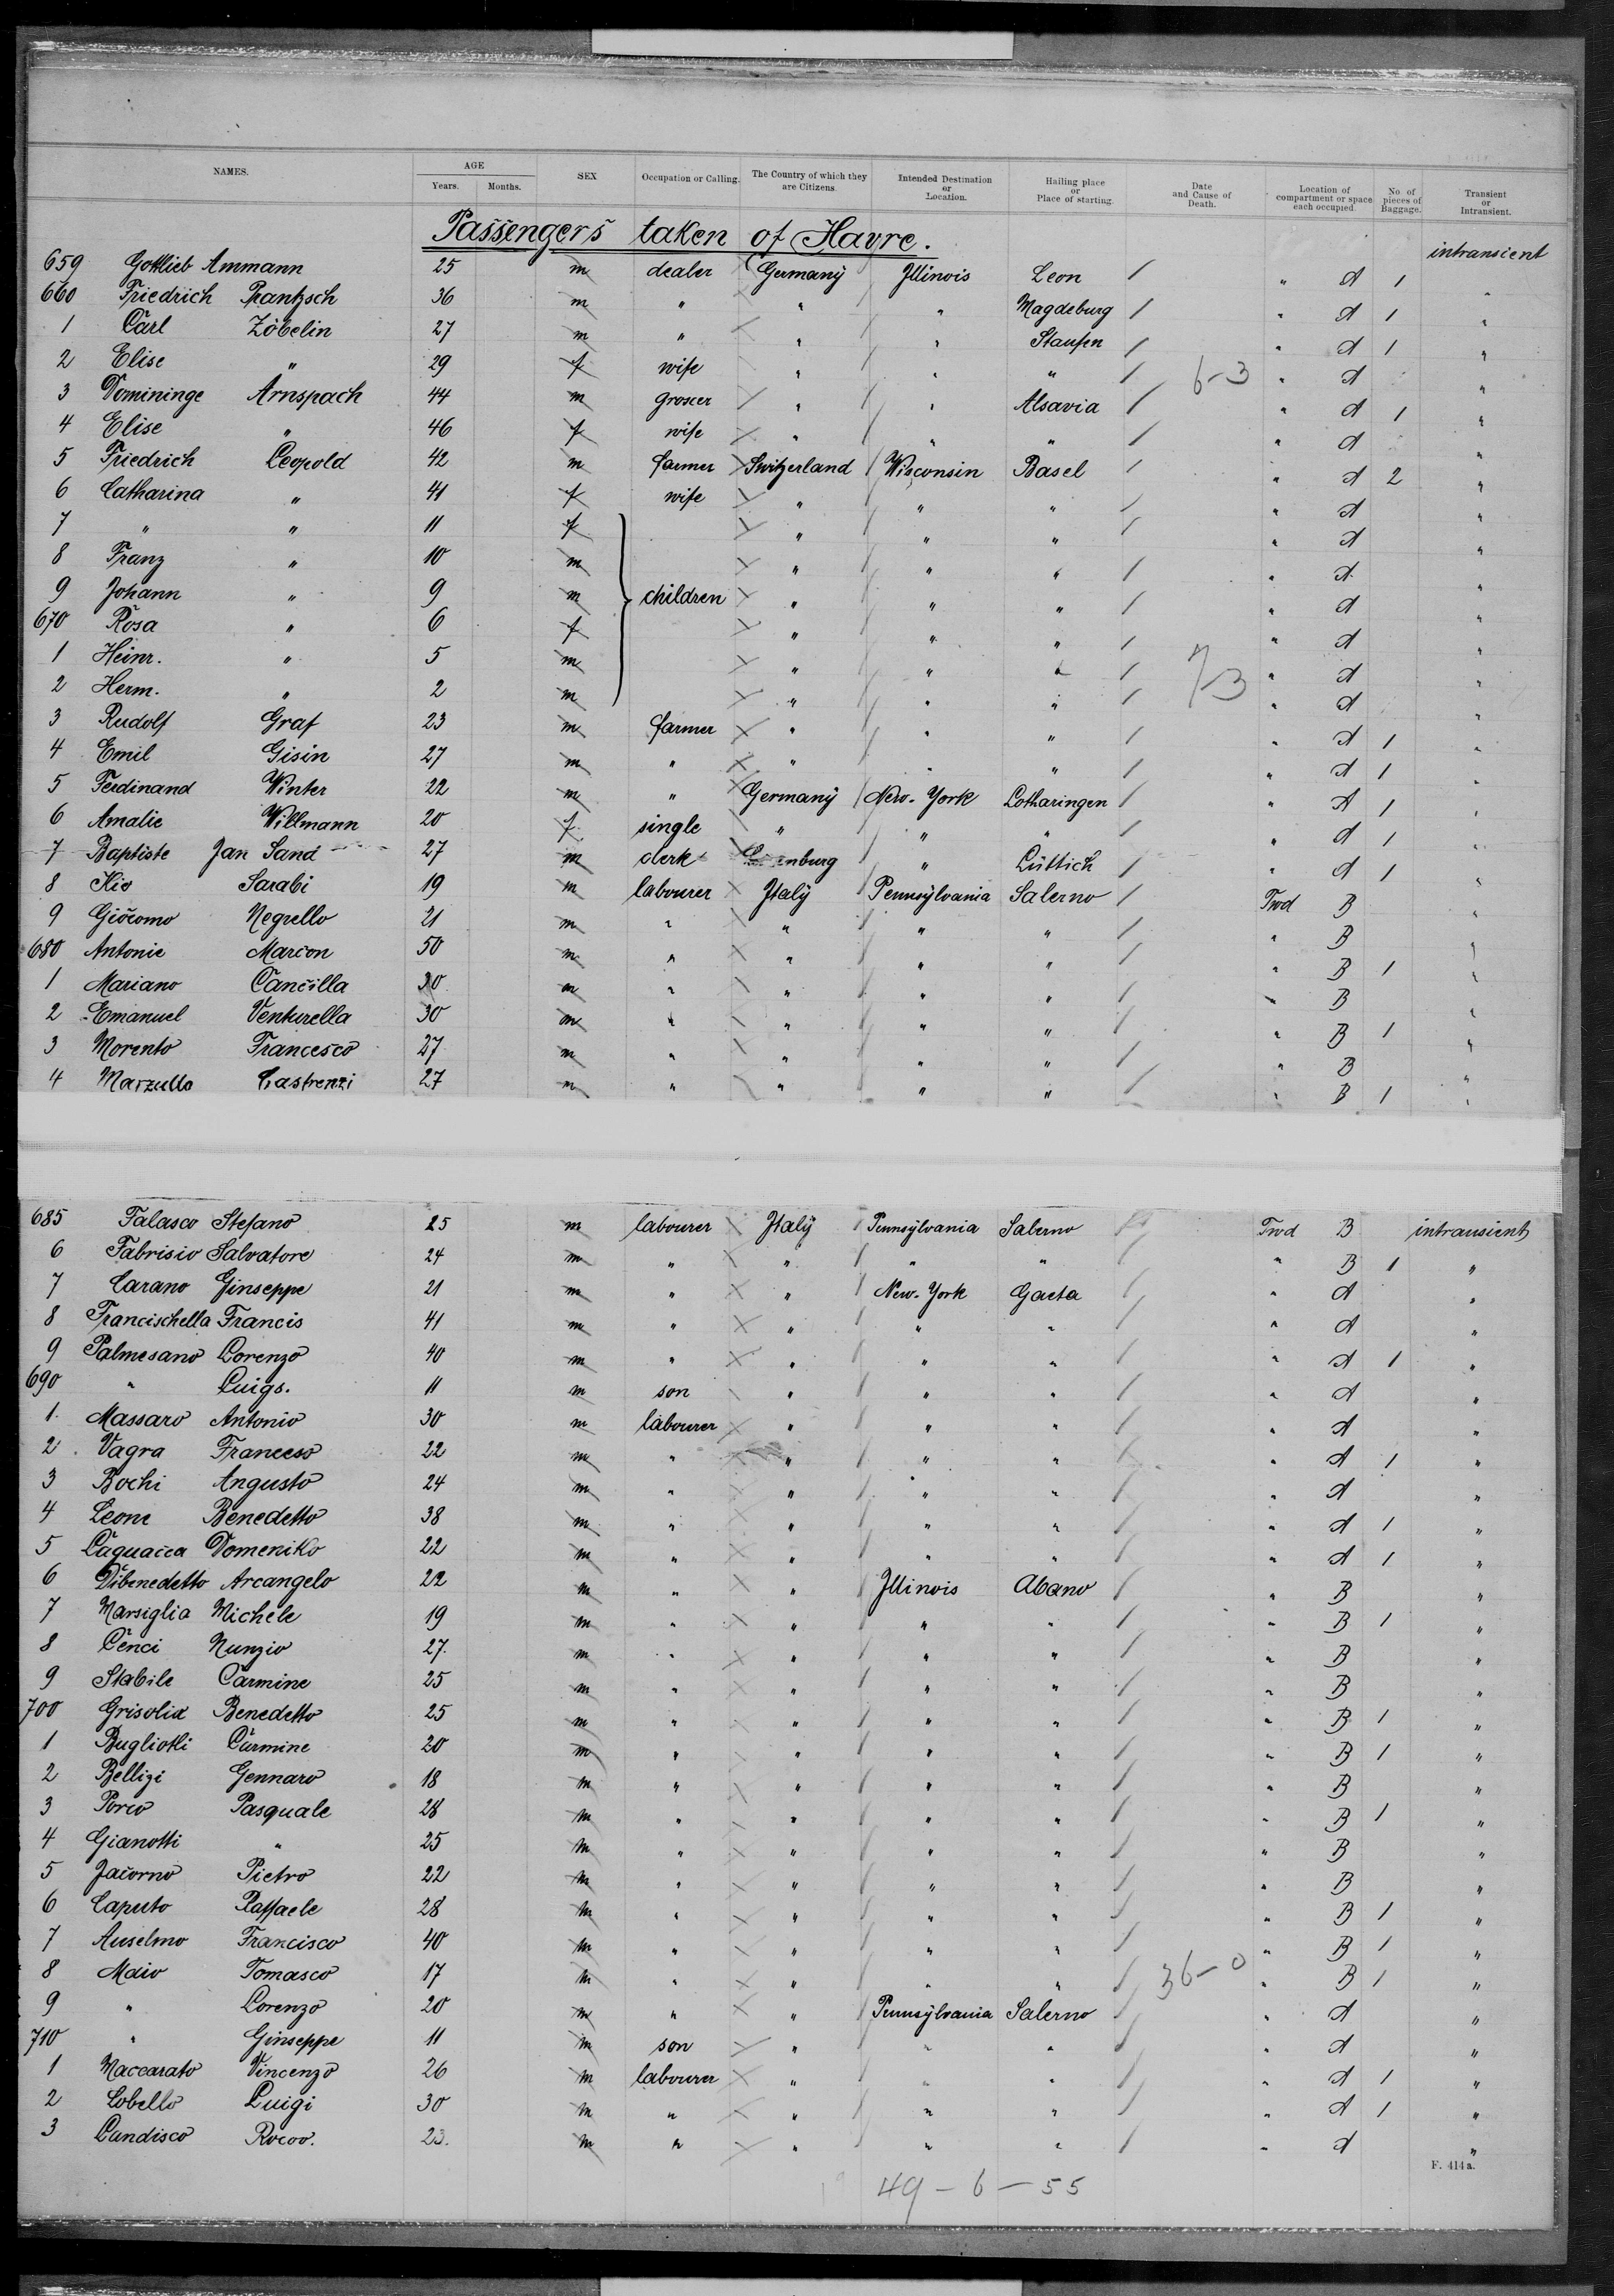 NAMES. AGE Years. Months. SEX Occupation or Calling. The Country of which they are Citizens. Intended Destination or Location. Hailing place or Place of starting. Date and Cause of Death. Location of compartment or space each occupied. No. of pieces of Baggage. Transient or Intransient.
Passengers taken of Havre.
659 Gottlieb Ammann 25 m dealer Germany Illinois Leon / " A 1 intransient
660 Friedrich Prantzsch 36 m " " " Magdeburg / " A 1 "
1 Carl Zöbelin 27 m " " " Staufen / " A 1 "
2 Elise " 29 f wife " " " / 6-3 " A "
3 Domininge Arnspach 44 m groser " " Alsavia / " A 1 "
4 Elise " 46 f wife " " " / " A "
5 Friedrich Leopold 42 m farmer Switzerland Wisconsin Basel / " A 2 "
6 Catharina " 41 f wife " " " / " A "
7 " " 11 f " " " / " A "
8 Franz " 10 m " " " / " A "
9 Johann " 9 m children " " " / " A "
670 Rosa " 6 f " " " / " A "
1 Heinr. " 5 m " " " / 7-3 " A "
2 Herm. " 2 m " " " / " A "
3 Rudolf Graf 23 m farmer " " " / " A 1 "
4 Emil Gisin 27 m " " " " / " A 1 "
5 Ferdinand Winter 22 m " Germany New-York Lotharingen / " A 1 "
6 Amalie Willmann 20 f single " " " / " A 1 "
7 Baptiste Jan Sand 27 m clerk " Lüttich / " A 1 "
8 Kio Sarabi 19 m labourer Italy Pennsylvania Salerno / Twd B "
9 Giocomo Negrello 21 m " " " " / " B "
680 Antonie Marcon 50 m " " " " / " B 1 "
1 Mariano Cancilla 30 m " " " " / " B "
2 Emanuel Venturella 30 m " " " " / " B 1 "
3 Morento Francesco 27 m " " " " / " B "
4 Marzullo Castrenzi 27 m " " " " / " B 1 "
685 Falasco Stefano 25 m labourer Italy Pennsylvania Salerno / Twd B intransient
6 Fabrisio Salvatore 24 m " " " " / " B 1 "
7 Carano Ginseppe 21 m " " New-York Gaeta / " A "
8 Francischella Francis 41 m " " " " / " A "
9 Palmesano Lorenzo 40 m " " " " / " A 1 "
690 " Luigs. 11 m son " " " / " A "
1 Massaro Antonio 30 m labourer " " " / " A "
2 Vagra Francess 22 m " " " " / " A 1 "
3 Bochi Angusto 24 m " " " " / " A "
4 Leone Benedetto 38 m " " " " / " A 1 "
5 Caguacca Domeniko 22 m " " " " / " A 1 "
6 Dibenedetto Arcangelo 22 m " " Illinois Abano / " B "
7 Marsiglia Michele 19 m " " " " / " B 1 "
8 Cenci Nunzio 27 m " " " " / " B "
9 Stabile Carmine 25 m " " " " / " B "
700 Grisolia Benedetto 25 m " " " " / " B 1 "
1 Bugliotti Carmine 20 m " " " " / " B 1 "
2 Bellizi Gennaro 18 m " " " " / " B "
3 Porco Pasquale 28 m " " " " / " B 1 "
4 Gianotti " 25 m " " " " / " B "
5 Jacorno Pietro 22 m " " " " / " B "
6 Caputo Raffaele 28 m " " " " / " B 1 "
7 Auselmo Francisco 40 m " " " " / " B 1 "
8 Maio Tomasco 17 m " " " " / 36-0 " B 1 "
9 " Lorenzo 20 m " " Pennsylvania Salerno / " A "
710 " Ginseppe 11 m son " " " / " A "
1 Maccarato Vincenzo 26 m labourer " " " / " A 1 "
2 Lobello Luigi 30 m " " " " / " A 1 "
3 Landisco Rocoo. 23 m " " " " / " A "
F. 414a.
49-6-55